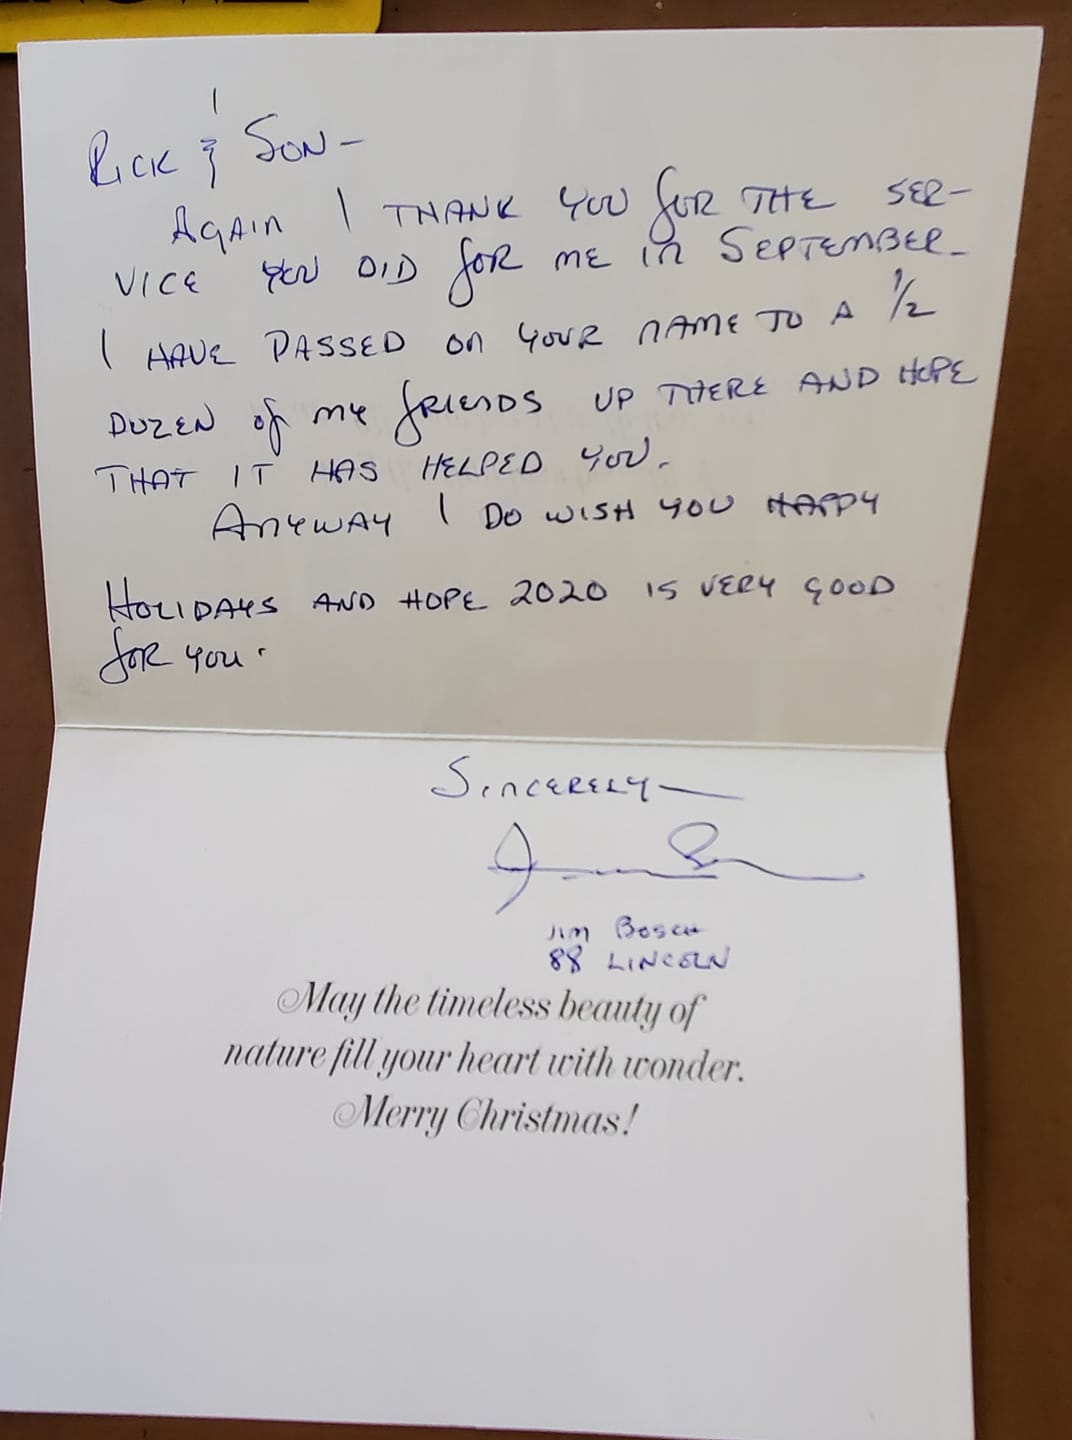 Rick & Son-
Again I thank you for the ser-
vice you did for me in September-
I have passed on your name to a 1/2
dozen of my friends up there and hope
that it has helped you.
Anyway I do wish you happy
Holidays and hope 2020 is very good
for you.
Sincerely-
Jim Bosch
88 Lincoln
May the timeless beauty of
nature fill your heart with wonder.
Merry Christmas!